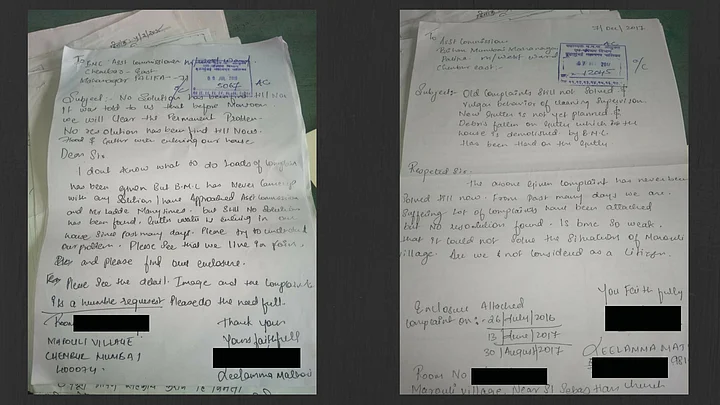 To,
BMC Asst Commissioner M/West Ward
Chembur - East
Mahanagar PALIKA - 71
09 JUL 2015
AC
Subject:- No Solution has been find till Now.
It was told to us that before Monsoon
we will clear the Permanent Problem.
No resolution has been find till Now.
& Gutter water entering our house.
Dear Sir
I dont know what to do Loads of
has been given But B.M.C has Never Came up
with any Solution I have Approached Asst Commissioner
and Many times. but Still No Solution
has been found. Gutter water is entering in our
house Since past many days. Please try to understand
our problem. Please See that we live in
and please find our enclosure.
Please See the detail Image and the Complaints
It is a humble request Please do the need full.
Thank you
Room
Yours faithfull
MAROULI VILLAGE
CHEMBUR MUMBAI
400074.
Leelamma
7/Dec/2017
To
Asst Commissioner
Brihan Mumbai Mahanagar
Palika M/West Ward
Chembur east.
12045
O/C
Subject:- Old Complaints Still not Solved &
Vulgar behavior of cleaning Supervisor.
New Gutter is not yet planned &
Debris fallen on Gutter which is the
house is demolished by B.M.C.
Has been there on the Gutter
Respected Sir.
The above given complaint has never been
Solved till now. From Past many days we are
Suffering lot of complaints have been attached
but No resolution found. Is bmc So weak.
that it could not Solve the Situation of Marouli
village. Are we not considered as a Citizen.
You Faithfully
Enclosure Attached
Complaint on:- 26/July/2016
13 /June/2017
30 /August/2017
LEELAMMA
Room No
Marouli village, Near St Sebastian church